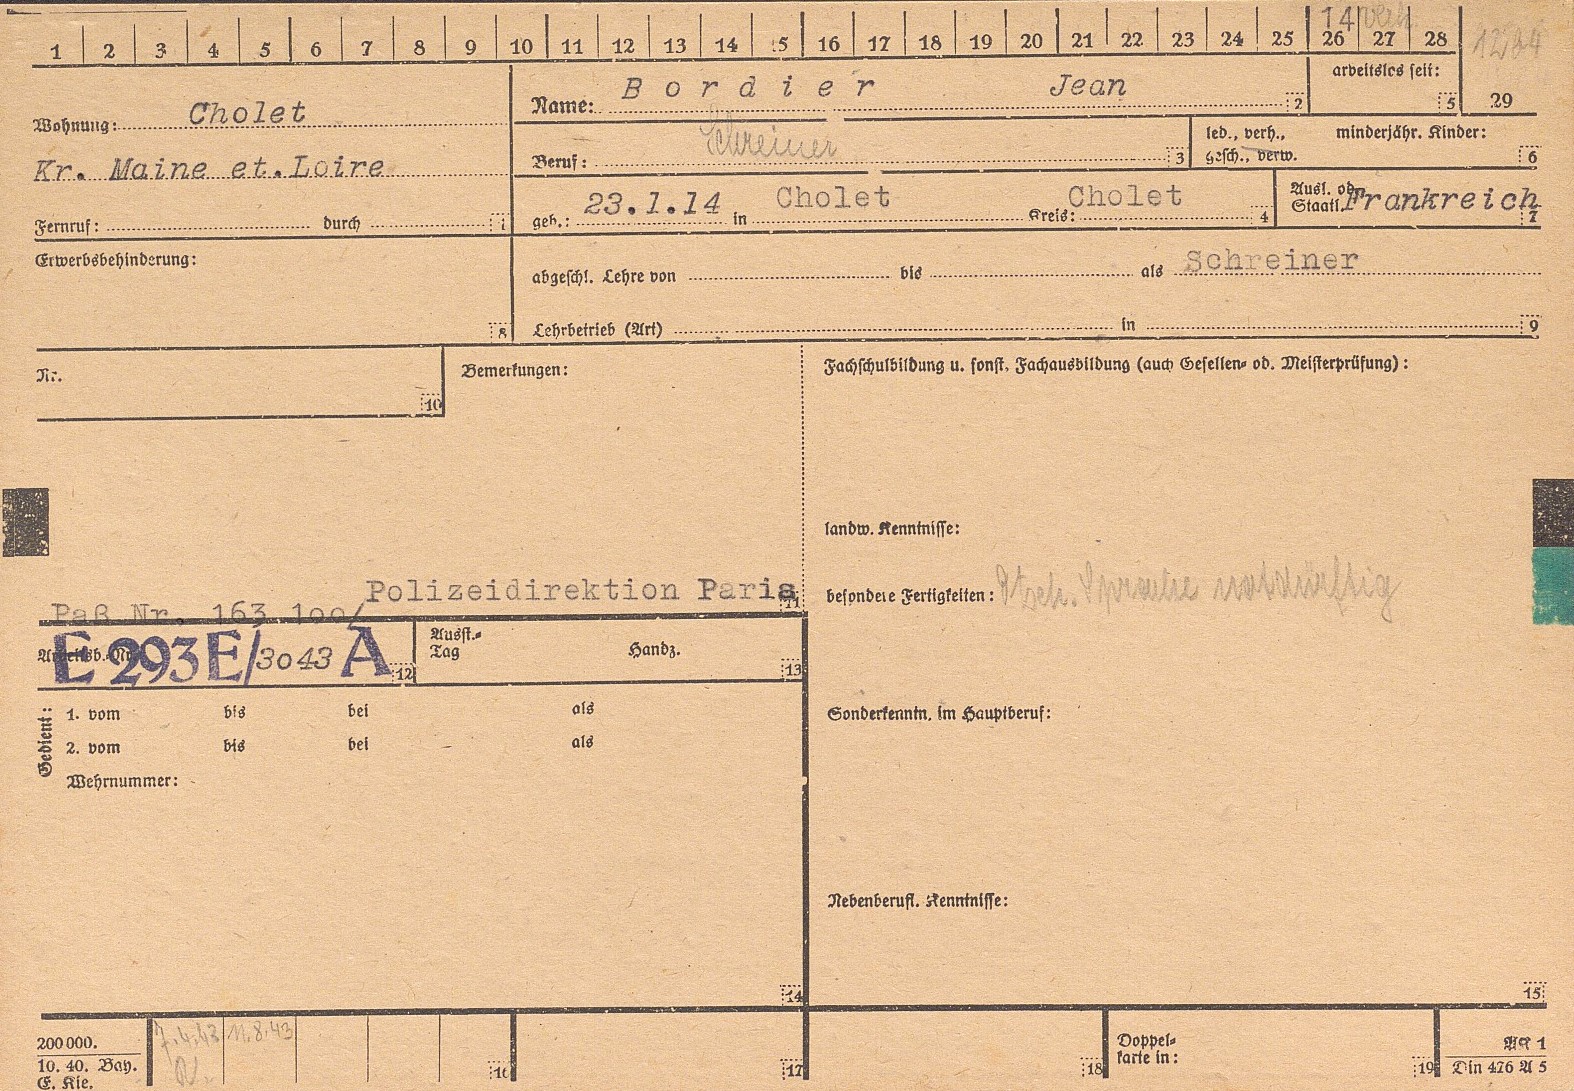 14 verh. 1234
1 2 3 4 5 6 7 8 9 10 11 12 13 14 15 16 17 18 19 20 21 22 23 24 25 26 27 28
Wohnung: Cholet
Kr. Maine et.Loire
Fernruf: durch 1
Name: Bordier Jean 2
arbeitslos seit: 5
29
Beruf: Schreiner 3
led., verh., minderjähr. Kinder:
gesch., verw. 6
geb.: 23.1.14 in Cholet Kreis: Cholet 4
Ausl. od.
Staatl. Frankreich 7
Erwerbsbehinderung:
8
abgeschl. Lehre von bis als Schreiner
Lehrbetrieb (Art) in 9
Nr.
10
Bemerkungen:
Polizeidirektion Paris
11
Paß Nr. 163 100/
Arbeitsb.-Nr. E 293E/3043 A 12
Ausst.-
Tag Handz. 13
Gedient:
1. vom bis bei als
2. vom bis bei als
Wehrnummer:
14
Fachschulbildung u. sonst. Fachausbildung (auch Gesellen- od. Meisterprüfung):
landw. Kenntnisse:
besondere Fertigkeiten: Dtsch. Sprache notdürftig
Sonderkenntn. im Hauptberuf:
Nebenberufl. Kenntnisse:
15
200000.
10. 40. Bay.
E. Kie.
7.4.43 11.8.43
16 17 18
Doppel-
karte in: 19
AK 1
Din 476 A 5